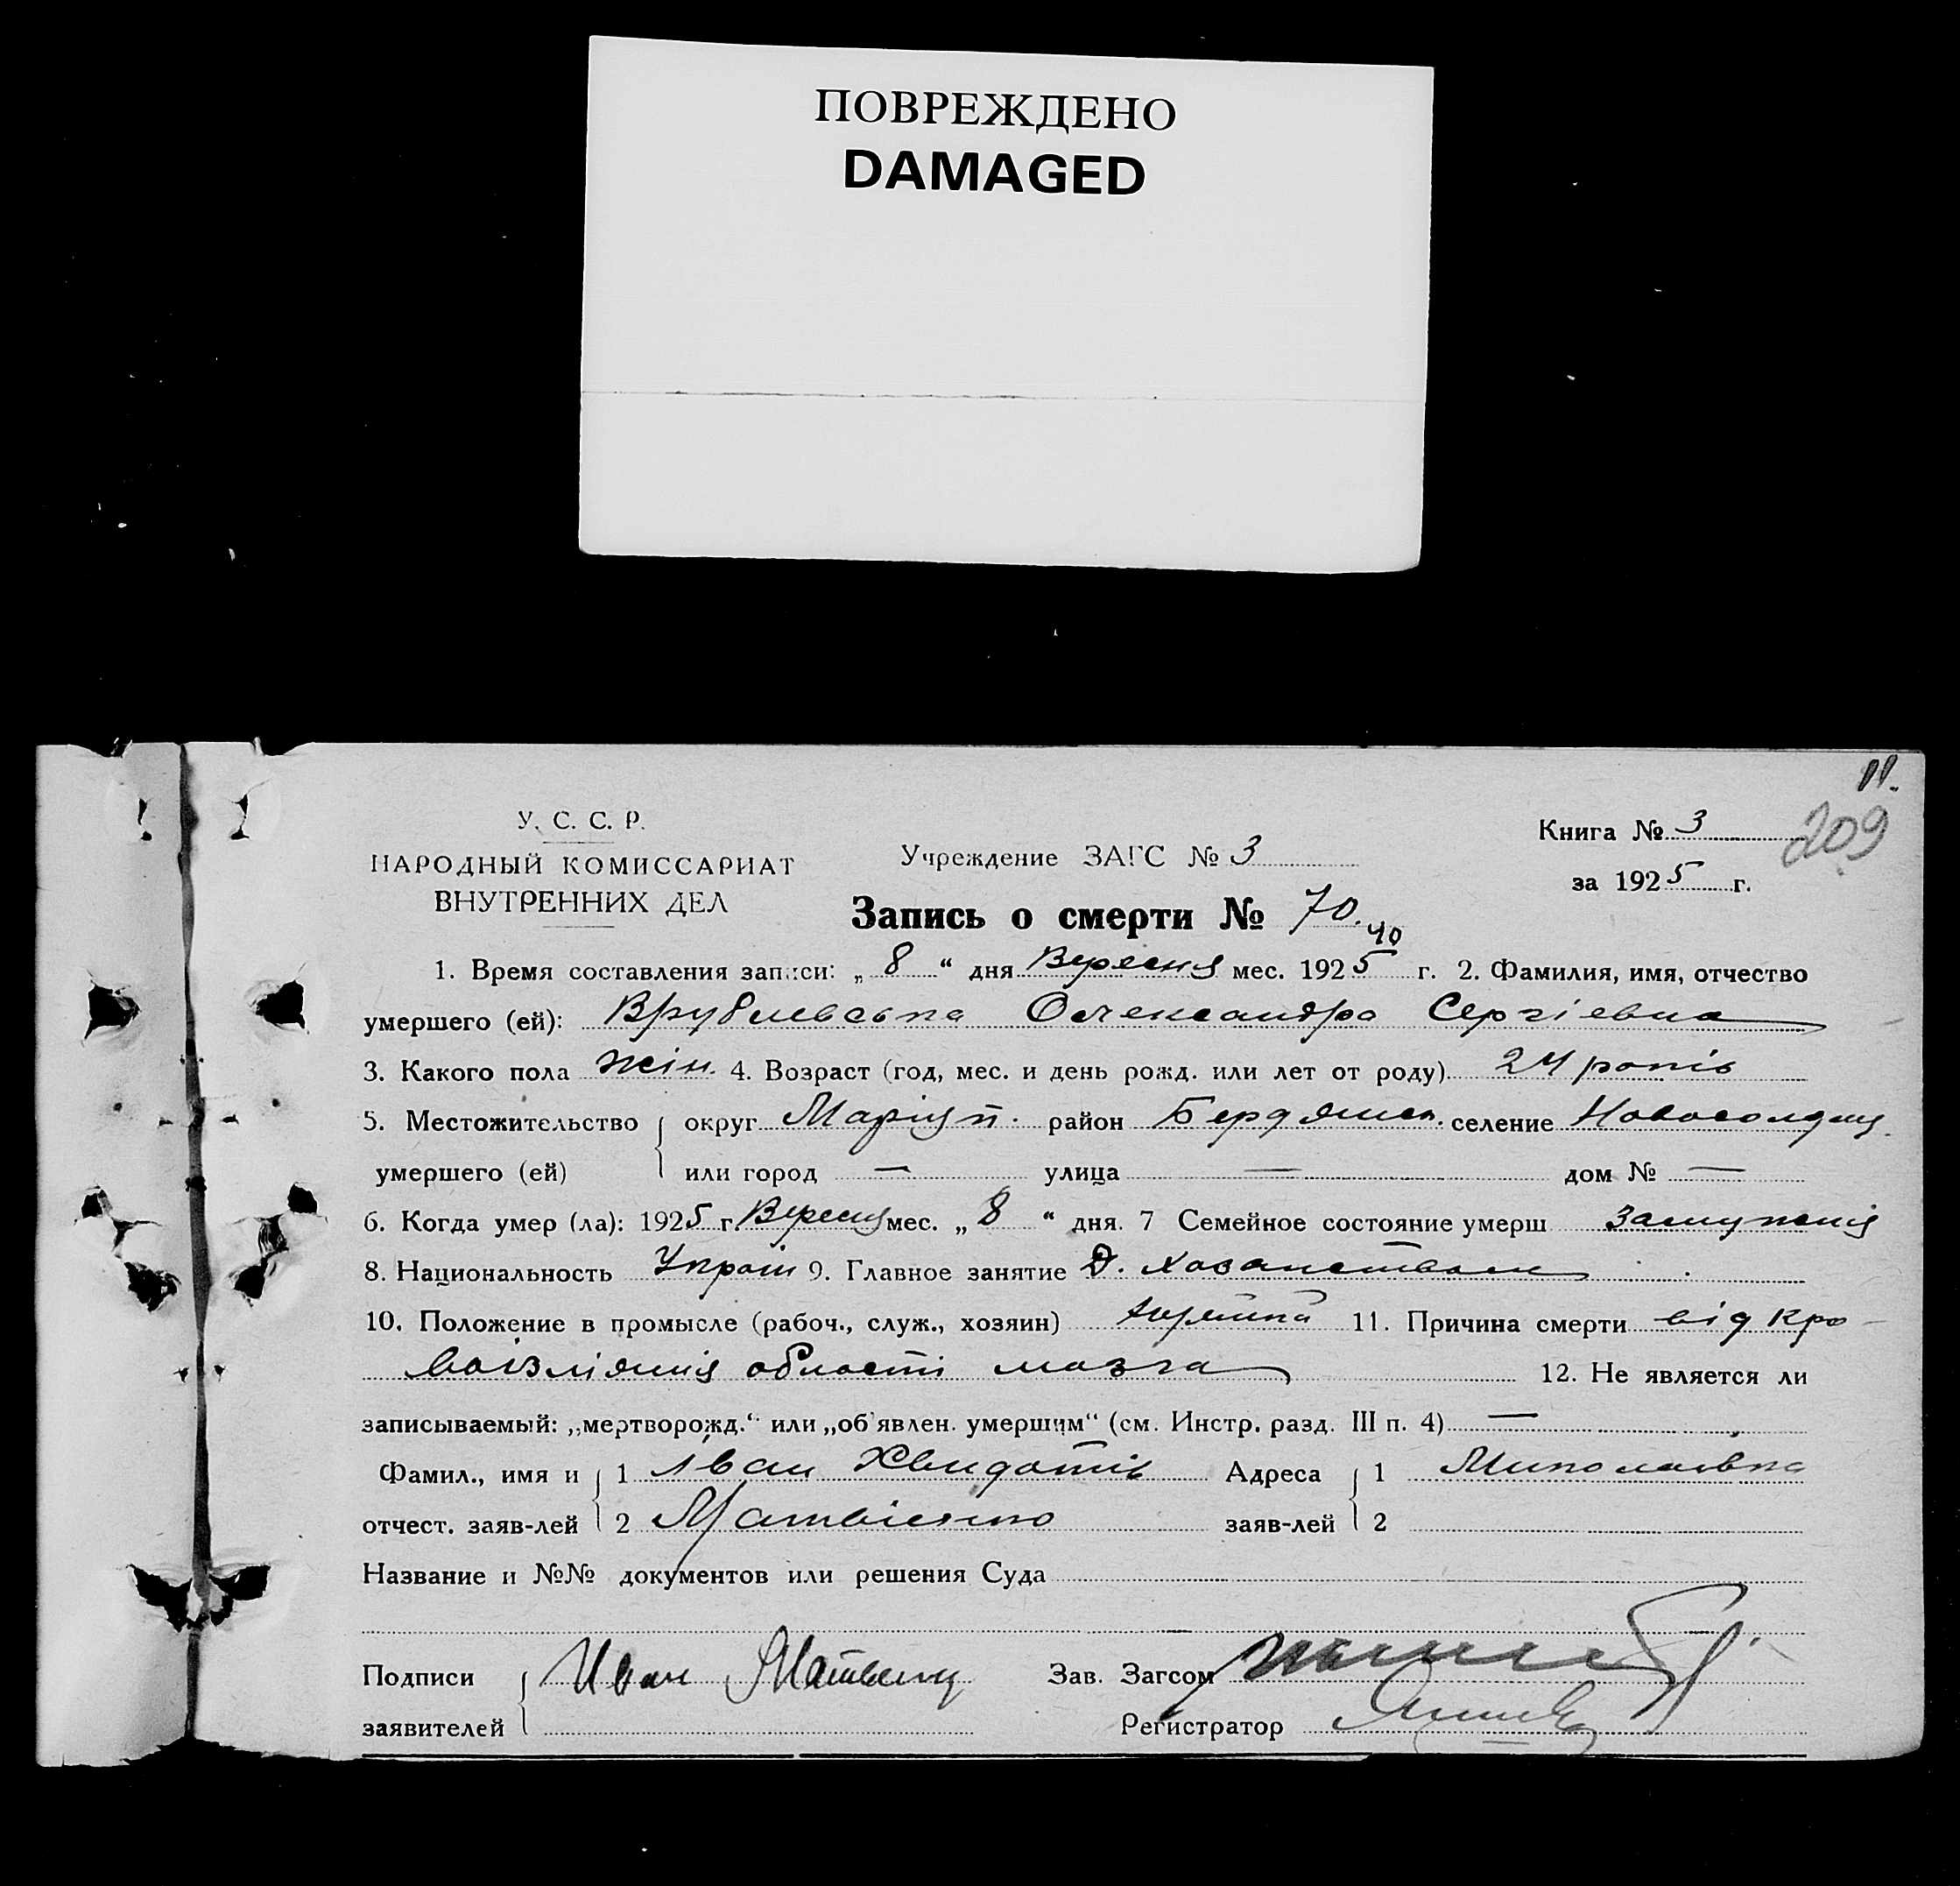 ПОВРЕЖДЕНО
DAMAGED
11.
209
У. С. С. Р.
НАРОДНЫЙ КОМИССАРИАТ
ВНУТРЕННИХ ДЕЛ
Учреждение ЗАГС № 3
Книга № 3
за 1925 г.
Запись о смерти № 70.
40
1. Время составления записи: „ 8 “ дня Вересня мес. 1925 г. 2. Фамилия, имя, отчество
умершего (ей): Врублевська Олександра Сергіевна
3. Какого пола жін. 4. Возраст (год, мес. и день рожд. или лет от роду) 24 років
5. Местожительство округ Маріуп. район Бердянськ. селение Новосолдац.
умершего (ей) или город — улица — дом № —
6. Когда умер (ла): 1925 г. Вересня мес. „ 8 “ дня. 7 Семейное состояние умерш замужня
8. Национальность Украін 9. Главное занятие Д. хозапством
10. Положение в промысле (рабоч., служ., хозяин) 11. Причина смерти від кро-
воізліянія області мозга 12. Не является ли
записываемый: „мертворожд.“ или „об'явлен. умершим“ (см. Инстр. разд. III п. 4) —
Фамил., имя и 1 Іван Хвидотів Адреса 1 Миколаівка
отчест. заяв-лей 2 Матвіенко заяв-лей 2
Название и №№ документов или решения Суда
Подписи Иван Матвеенц Зав. Загсом
заявителей Регистратор